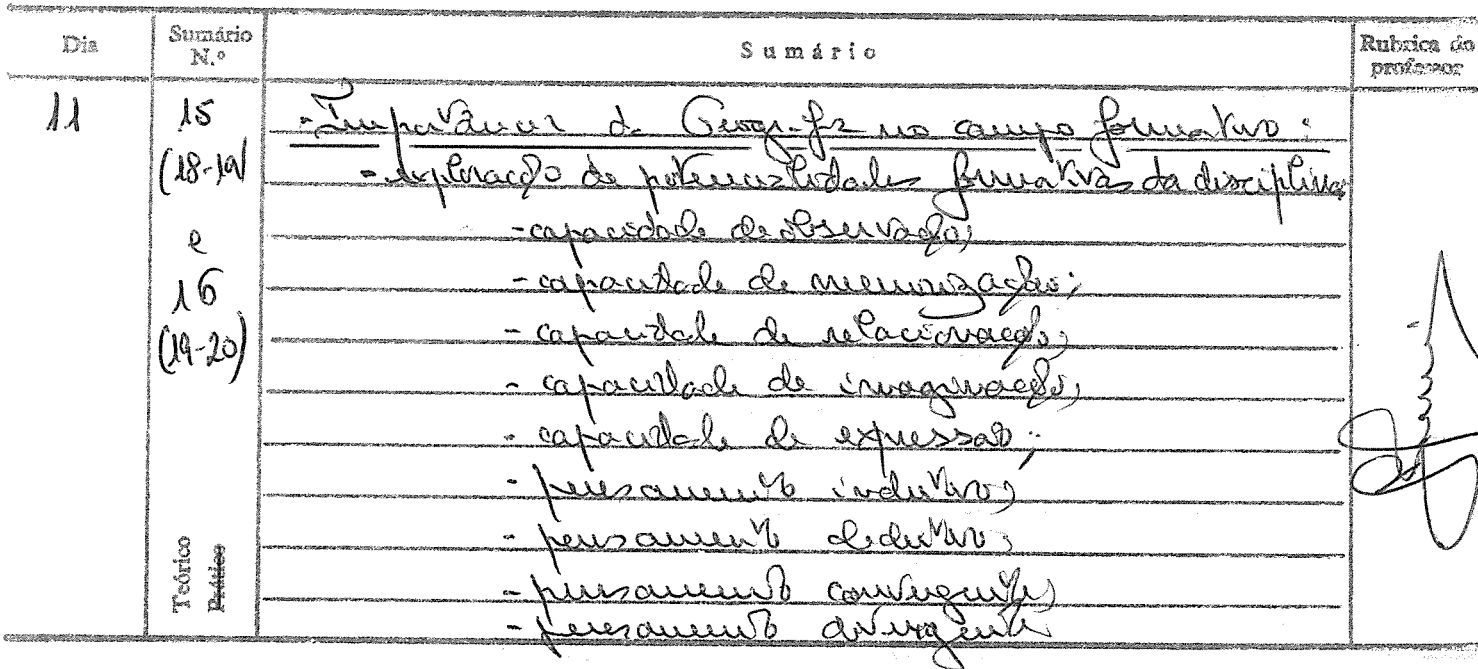 Dia Sumário N.º Sumário Rubrica do professor
11 15 - Importância da Geografia no campo formativo:
(18-19) - exploração de potencialidades formativas da disciplina
- capacidade de observação;
e
- capacidade de memorização;
16
- capacidade de relacionação;
(19-20)
- capacidade de imaginação;
- capacidade de expressão;
- pensamento indutivo;
- pensamento dedutivo;
- pensamento convergente;
- pensamento divergente
Teórico
Prático